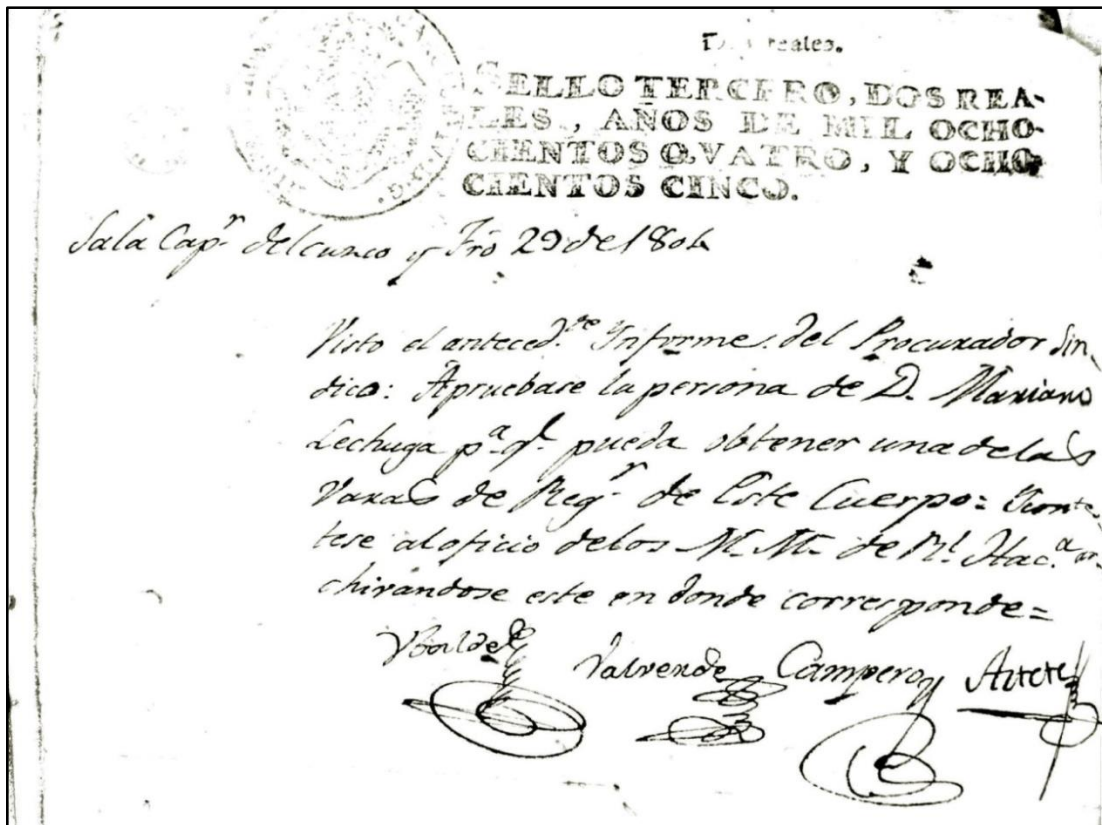 Dos reales.
SELLO TERCERO, DOS REA-
LES, AÑOS DE MIL OCHO-
CIENTOS QVATRO, Y OCHO-
CIENTOS CINCO.
Sala Cap.r del cuzco y Fro 29 de 1804
Visto el anteced.te Informe del Procurador Sin
dico: Apruebase la persona de D. Mariano
Lechuga p.a q.e pueda obtener una de las
Varas de Reg.r de Este Cuerpo: Conte
tese al oficio de los M. M. de R.l Hac.a ar
chivándose este en donde corresponde=
Valverde Campero Artete